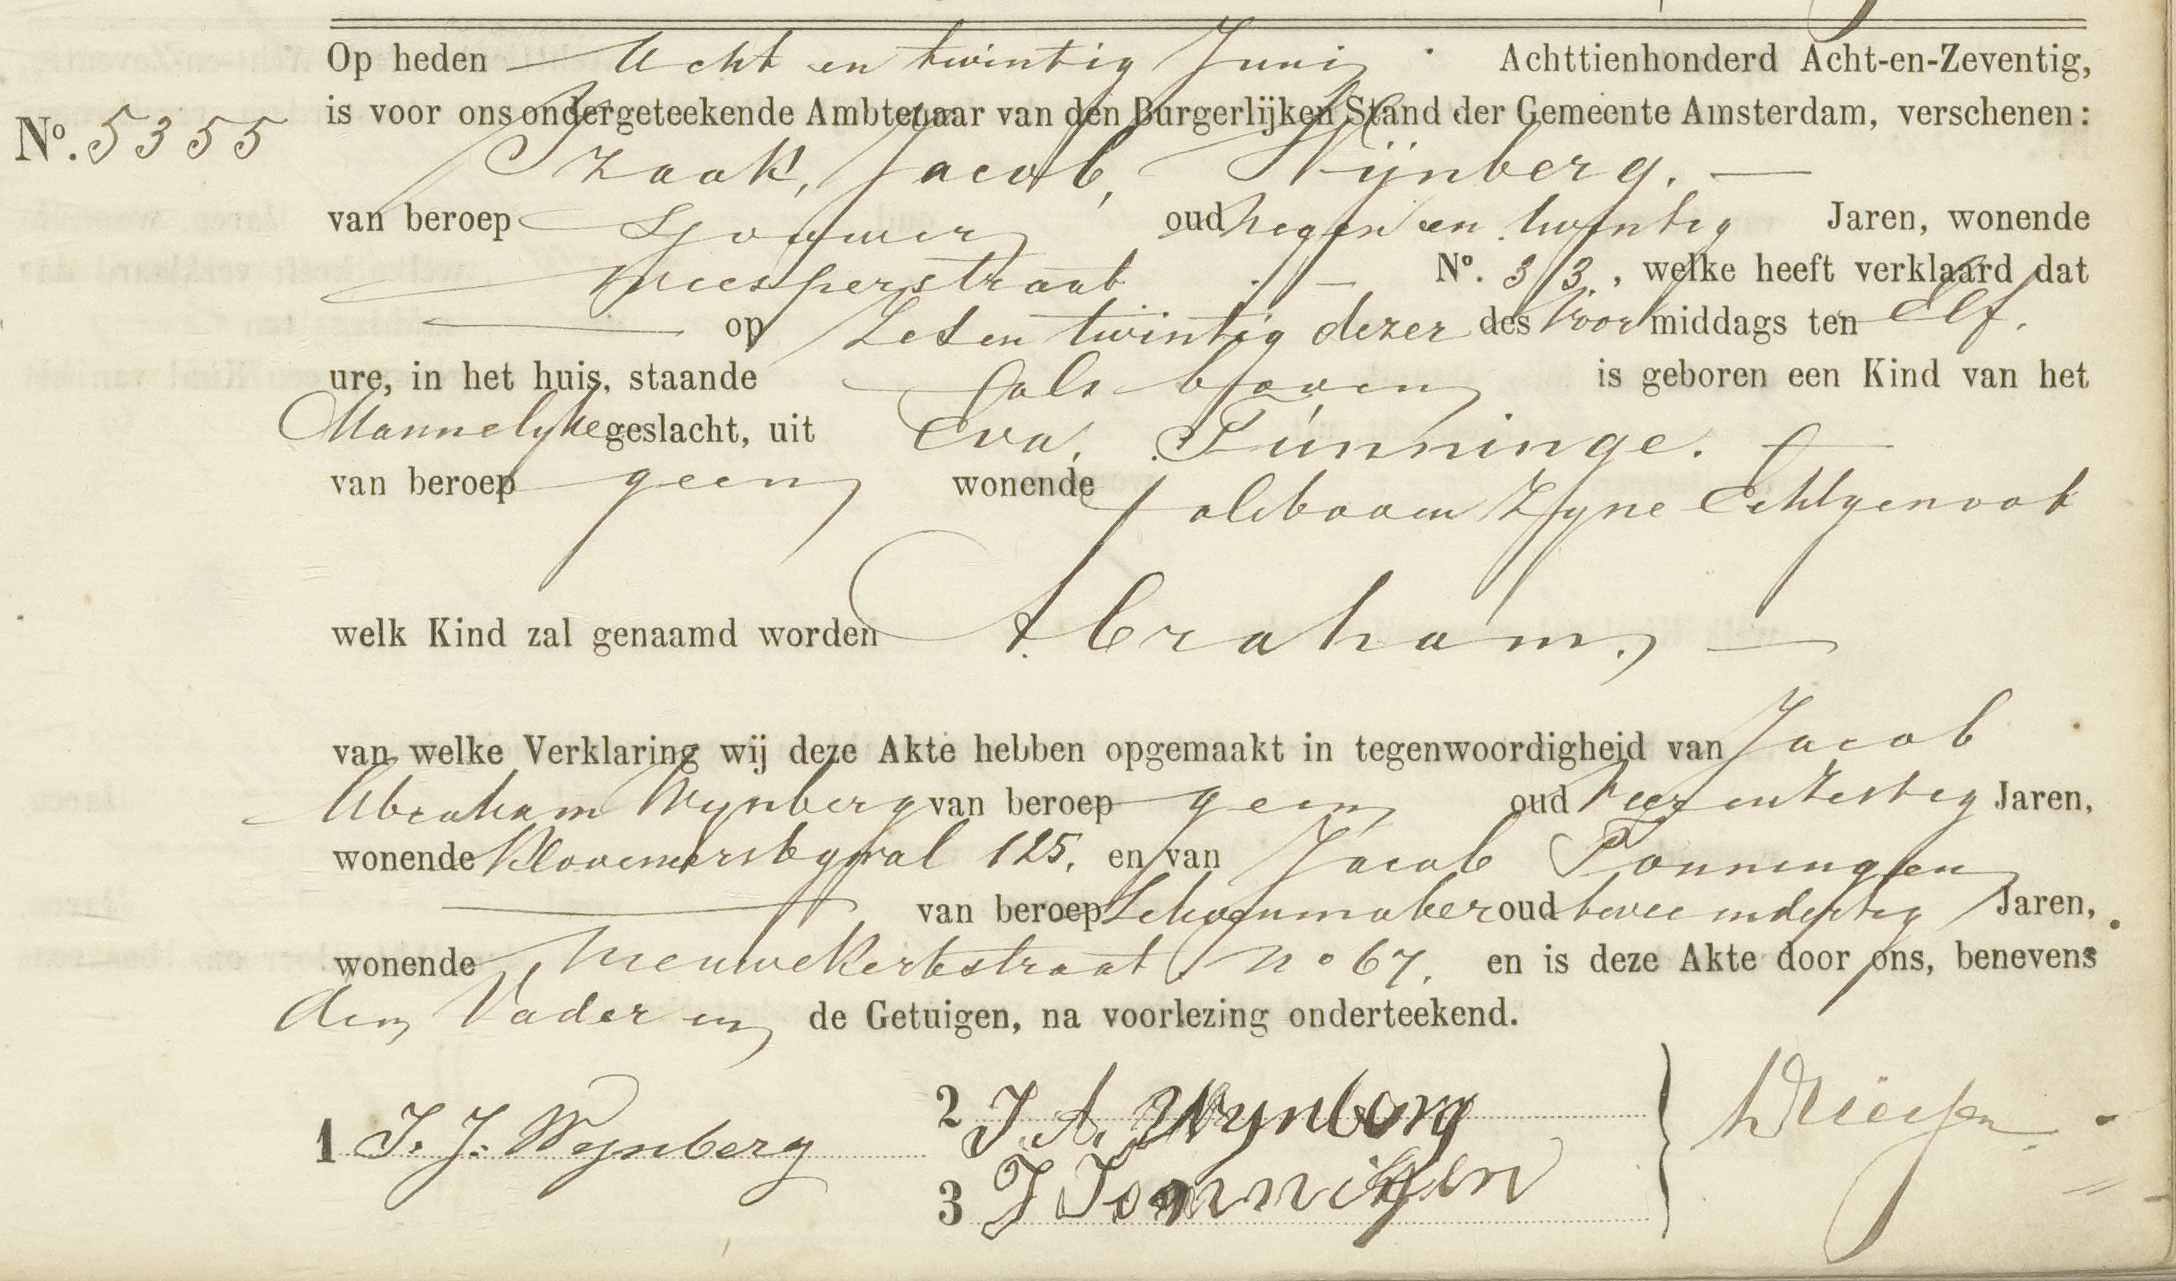 Op heden Acht en twintig Juni Achttienhonderd Acht-en-Zeventig,
No. 5355
is voor ons ondergeteekende Ambtenaar van den Burgerlijken Stand der Gemeente Amsterdam, verschenen:
Izaak, Jacob, Wijnberg.
van beroep Sjouwer oud negen en twintig Jaren, wonende
Weesperstraat No. 33, welke heeft verklaard dat
op Zes en twintig dezer des Voormiddags ten Elf
ure, in het huis, staande als boven is geboren een Kind van het
Mannelyke geslacht, uit Eva, Tunninge.
van beroep geen wonende alsboven Zyne Echtgenoot
welk Kind zal genaamd worden Abraham.
van welke Verklaring wij deze Akte hebben opgemaakt in tegenwoordigheid van Jacob
Abraham Wynberg van beroep geen oud Jaren,
wonende 125, en van Jacob Tonningen
van beroep Schoenmaker oud twee endertig Jaren,
wonende Nieuwekerkstraat No 67, en is deze Akte door ons, benevens
den Vader en de Getuigen, na voorlezing onderteekend.
1 I. J. Wynberg
2 J. A. Wynberg
3 J Tonningen